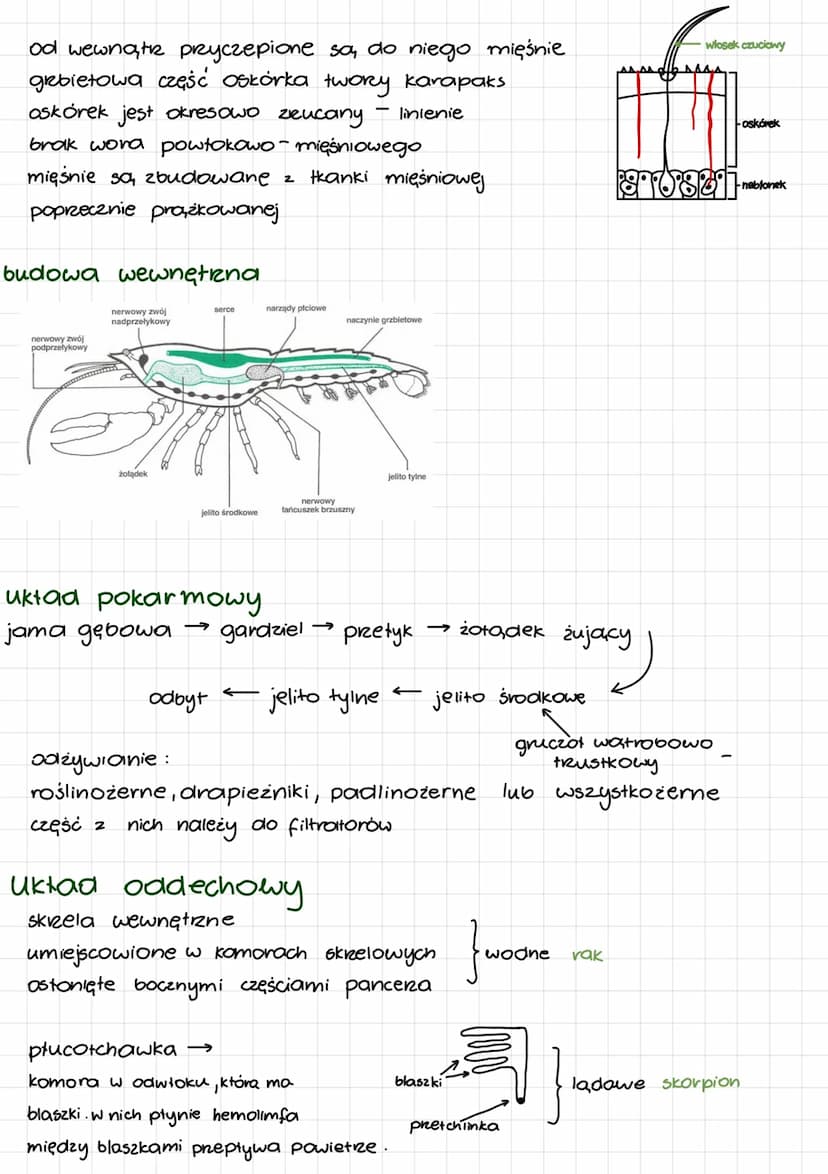 od wewnątrz przyczepione są do niego mięśnie
grzbietowa część oskórka tworzy karapaks
oskórek jest okresowo zrzucany - linienie
brak wora powłokowo-mięśniowego
mięśnie są zbudowane z tkanki mięśniowej
poprzecznie prążkowanej
włosek czuciowy
oskórek
nabłonek
budowa wewnętrzna
nerwowy zwój
nadprzełykowy
serce
narządy płciowe
naczynie grzbietowe
nerwowy zwój
podprzełykowy
żołądek
jelito tylne
jelito środkowe
nerwowy
łańcuszek brzuszny
układ pokarmowy
jama gębowa → gardziel → przełyk → żołądek żujący
odbyt ← jelito tylne ← jelito środkowe
gruczoł wątrobowo -
trzustkowy
odżywianie :
roślinożerne, drapieżniki, padlinożerne lub wszystkożerne
część z nich należy do filtratorów
układ oddechowy
skrzela wewnętrzne
umiejscowione w komorach skrzelowych
osłonięte bocznymi częściami pancerza
wodne rak
płucotchawka →
komora w odwłoku, która ma
blaszki. w nich płynie hemolimfa
między blaszkami przepływa powietrze.
blaszki
przetchlinka
lądowe skorpion